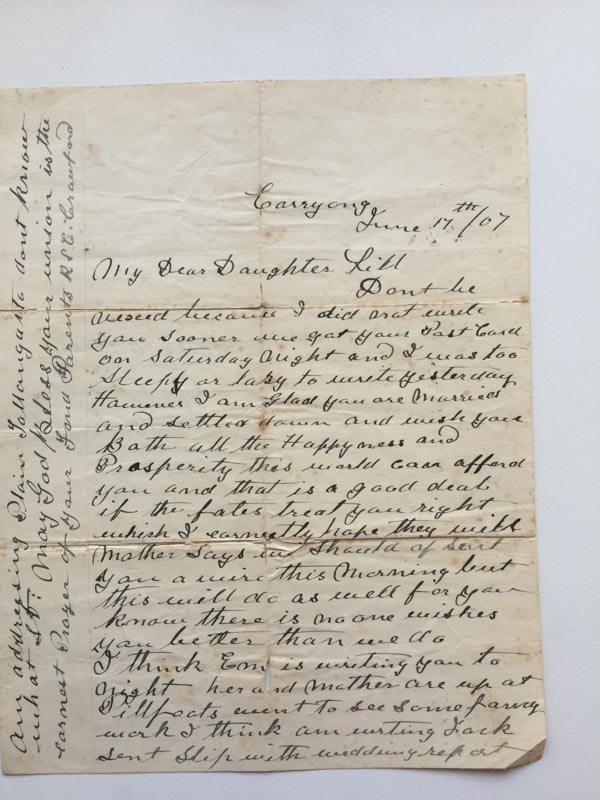 Corryong
June 17th/07
My Dear Daughter Lill
Dont be
vexed because I did not write
you sooner we got your Post Card
on Saturday Night and I was too
Sleepy or lazy to write yesterday
However I am Glad you are Married
and settled down and wish you
Both all the Happyness and
Prosperity this world can afford
you and that is a good deal
if the fates treat you right
whish I earnestly hope they will
Mother Says we Should of Sent
you a wire this Morning but
this will do as well for you
know there is no one wishes
you better than we do
I think Em is writing you to
night her and Mother are up at
went to see some fancy
work I think am writing Jack
sent Slip with wedding report
am addressing Plain Tallangatta dont know
what St. May God Bless your union is the
earnest Prayer of your Fond Parents R &C. Crawford